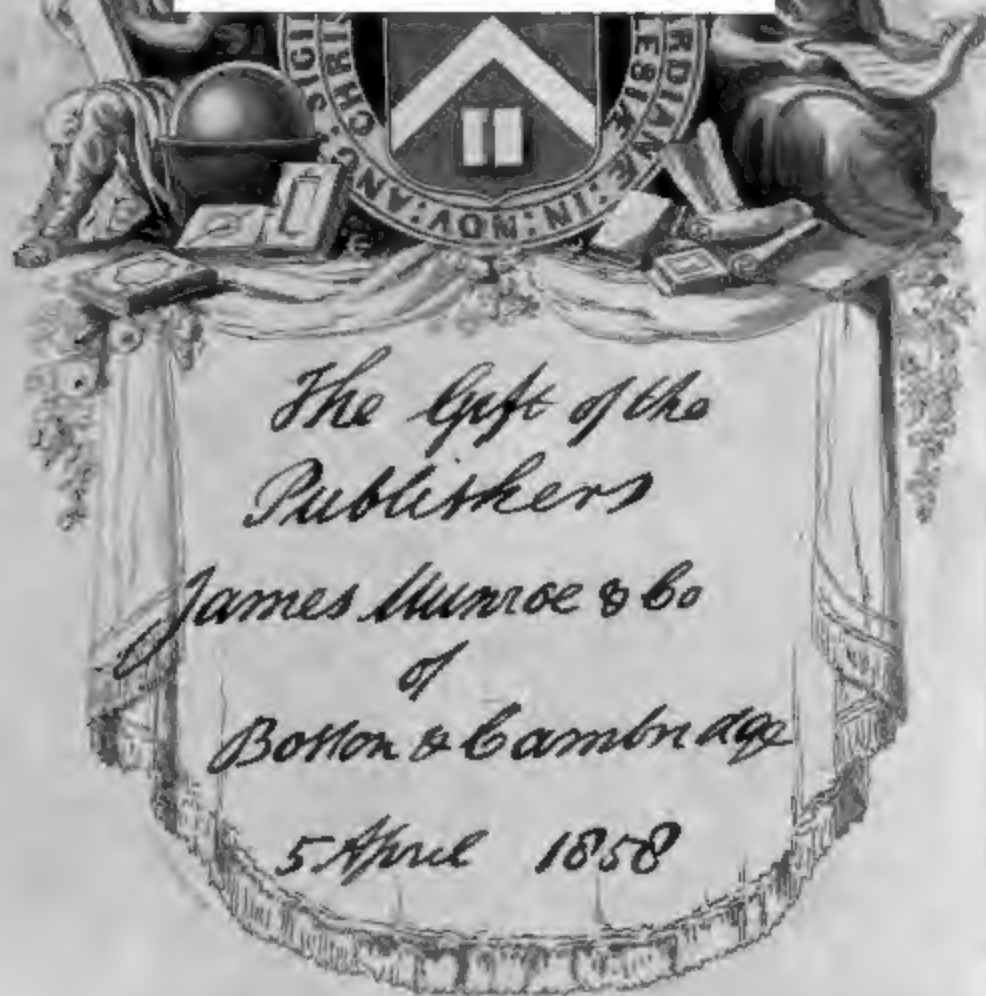 SIGI
CHRI
ESIÆ
RDIANÆ: IN: NOV: ANG:
The Gift of the
Publishers
James Munroe & Co
of
Boston & Cambridge
5 April 1858